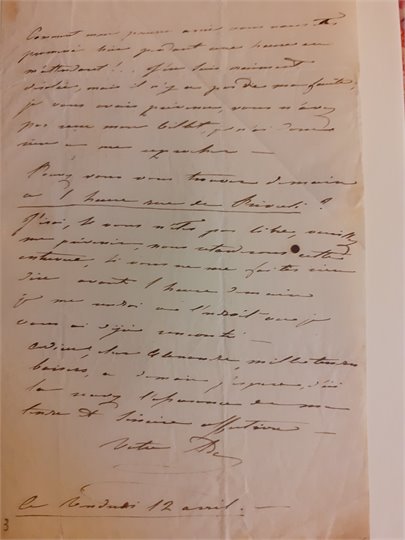 Comment mon pauvre ami vous vous êtes
promené hier pendant une heure en
m'attendant!.. J'en suis vraiment
désolée, mais il n'y a pas de ma faute,
je vous avais prévenu, vous n'avez
pas reçu mon billet, je n'ai donc
rien à me reprocher —
Pouvez vous vous trouver demain
à 1 heure rue de Rivoli?
Si vous n'êtes pas libre, veuillez
me prévenir, nous retarderons cette
entrevue, si vous ne me faites rien
dire avant 1 heure demain
je me rendrai à l'endroit où je
vous ai déjà rencontré —
Adieu, cher Alexandre, mille tendres
baisers, à demain j'espère, d'ici
là recevez l'assurance de ma
tendre et sincère affection —
Votre
Ce Vendredi 12 avril. —
3